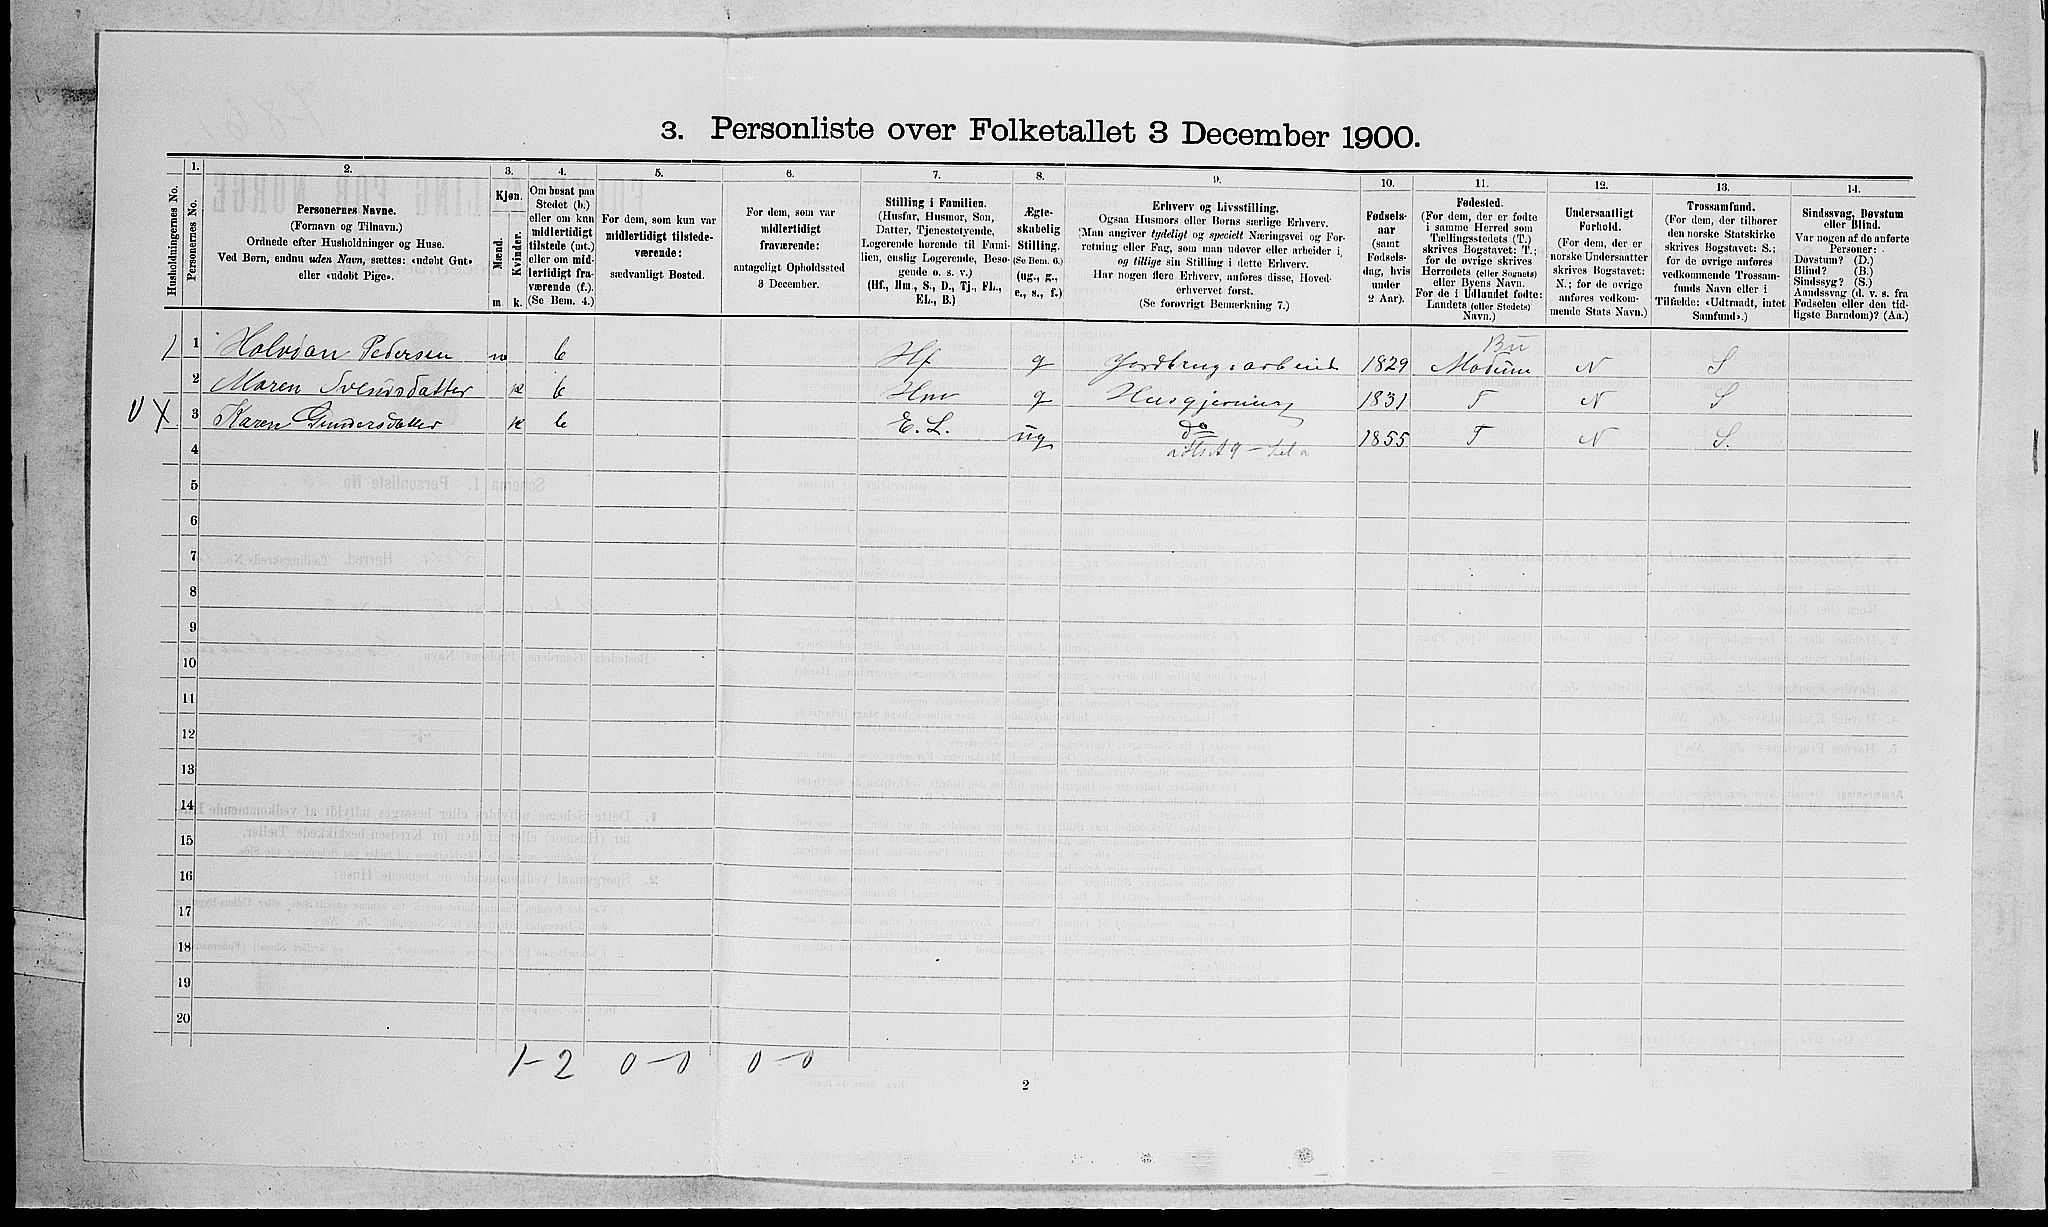 3. Personliste over Folketallet 3 December 1900.
1.
2.
3.
4.
5.
6.
7.
8.
9.
10.
11.
12.
13.
14.
Husholdningernes No.
Personernes No.
Personernes Navne.
(Fornavn og Tilnavn.)
Ordnede efter Husholdninger og Huse.
Ved Børn, endnu uden Navn, sættes: «udøbt Gut»
eller «udøbt Pige».
Kjøn.
Mænd.
Kvinder.
m
k.
Om bosat paa
Stedet (b.)
eller om kun
midlertidigt
tilstede (mt.)
eller om mid-
lertidigt fra-
værende (f.).
(Se Bem. 4.)
For dem, som kun var
midlertidigt tilstede-
værende:
sædvanligt Bosted.
For dem, som var
midlertidigt
fraværende:
antageligt Opholdssted
3 December.
Stilling i Familien.
(Husfar, Husmor, Søn,
Datter, Tjenestetyende,
Logerende hørende til Fami-
lien, enslig Logerende, Besø-
gende o. s. v.)
(Hf., Hm., S., D., Tj., FL.,
EL., B.)
Ægte-
skabelig
Stilling.
(Se Bem. 6.)
(ug., g.,
e., s., f.)
Erhverv og Livsstilling.
Ogsaa Husmors eller Børns særlige Erhverv.
(Man angiver tydeligt og specielt Næringsvei og For-
retning eller Fag, som man udøver eller arbeider i,
og tillige sin Stilling i dette Erhverv.
Har nogen flere Erhverv, anføres disse, Hoved-
erhvervet først.
(Se forøvrigt Bemerkning 7.)
Fødsels-
aar
(samt
Fødsels-
dag, hvis
under
2 Aar).
Fødested.
(For dem, der er fødte
i samme Herred som
Tællingsstedets (T.)
skrives Bogstavet: T.;
for de øvrige skrives
Herredets (eller Sognets)
eller Byens Navn.
For de i Udlandet fødte:
Landets (eller Stedets)
Navn.)
Undersaatligt
Forhold.
(For dem, der er
norske Undersaatter
skrives Bogstavet:
N.; for de øvrige
anføres vedkom-
mende Stats Navn.)
Trossamfund.
(For dem, der tilhører
den norske Statskirke
skrives Bogstavet: S.;
for de øvrige anføres
vedkommende Trossam-
funds Navn eller i
Tilfælde: «Udtraadt, intet
Samfund».)
Sindssvag, Døvstum
eller Blind.
Var nogen af de anførte
Personer:
Døvstum? (D.)
Blind? (B.)
Sindssyg? (S.)
Aandssvag (d. v. s. fra
Fødselen eller den tid-
ligste Barndom)? (Aa.)
1 Pedersen m b Hf g Jordbrugsarbeide 1829 Bu Modum N S
2 Maren Svendsdatter k b Hm g Husgjerning 1831 T N S
3 Karen Gundersdatter k b E. L. ug do 1855 T N S.
4
5
6
7
8
9
10
11
12
13
14
15
16
17
18
19
20
1-2 0-0 0-0
2